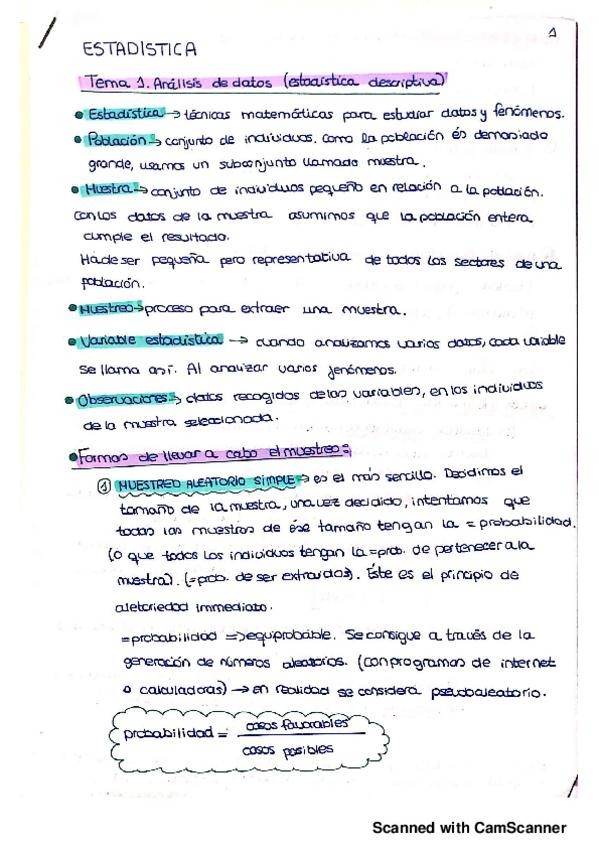 1
ESTADÍSTICA
Tema 1. Análisis de datos (estadística descriptiva)
• Estadística → técnicas matemáticas para estudiar datos y fenómenos.
• Población → conjunto de individuos. Como la población és demasiado
grande, usamos un subconjunto llamado muestra.
• Muestra → conjunto de individuos pequeño en relación a la población.
Con los datos de la muestra asumimos que la población entera
cumple el resultado.
Ha de ser pequeña pero representativa de todos los sectores de una
población.
• Muestreo → proceso para extraer una muestra.
• Variable estadística → cuando analizamos varios datos, cada variable
se llama así. Al analizar varios fenómenos.
• Observaciones → datos recogidos de las variables, en los individuos
de la muestra seleccionada.
• Formas de llevar a cabo el muestreo:
① MUESTREO ALEATORIO SIMPLE → es el más sencillo. Decidimos el
tamaño de la muestra, una vez decidido, intentamos que
todas las muestras de ése tamaño tengan la = probabilidad.
(o que todos los individuos tengan la = prob. de pertenecer a la
muestra). (= prob. de ser extraídos). Éste es el principio de
aletoriedad inmediato.
= probabilidad => equiprobable. Se consigue a través de la
generación de números aleatorios. (con programas de internet
o calculadoras) → en realidad se considera pseudoaleatorio.
probabilidad = casos favorables
casos posibles
Scanned with CamScanner